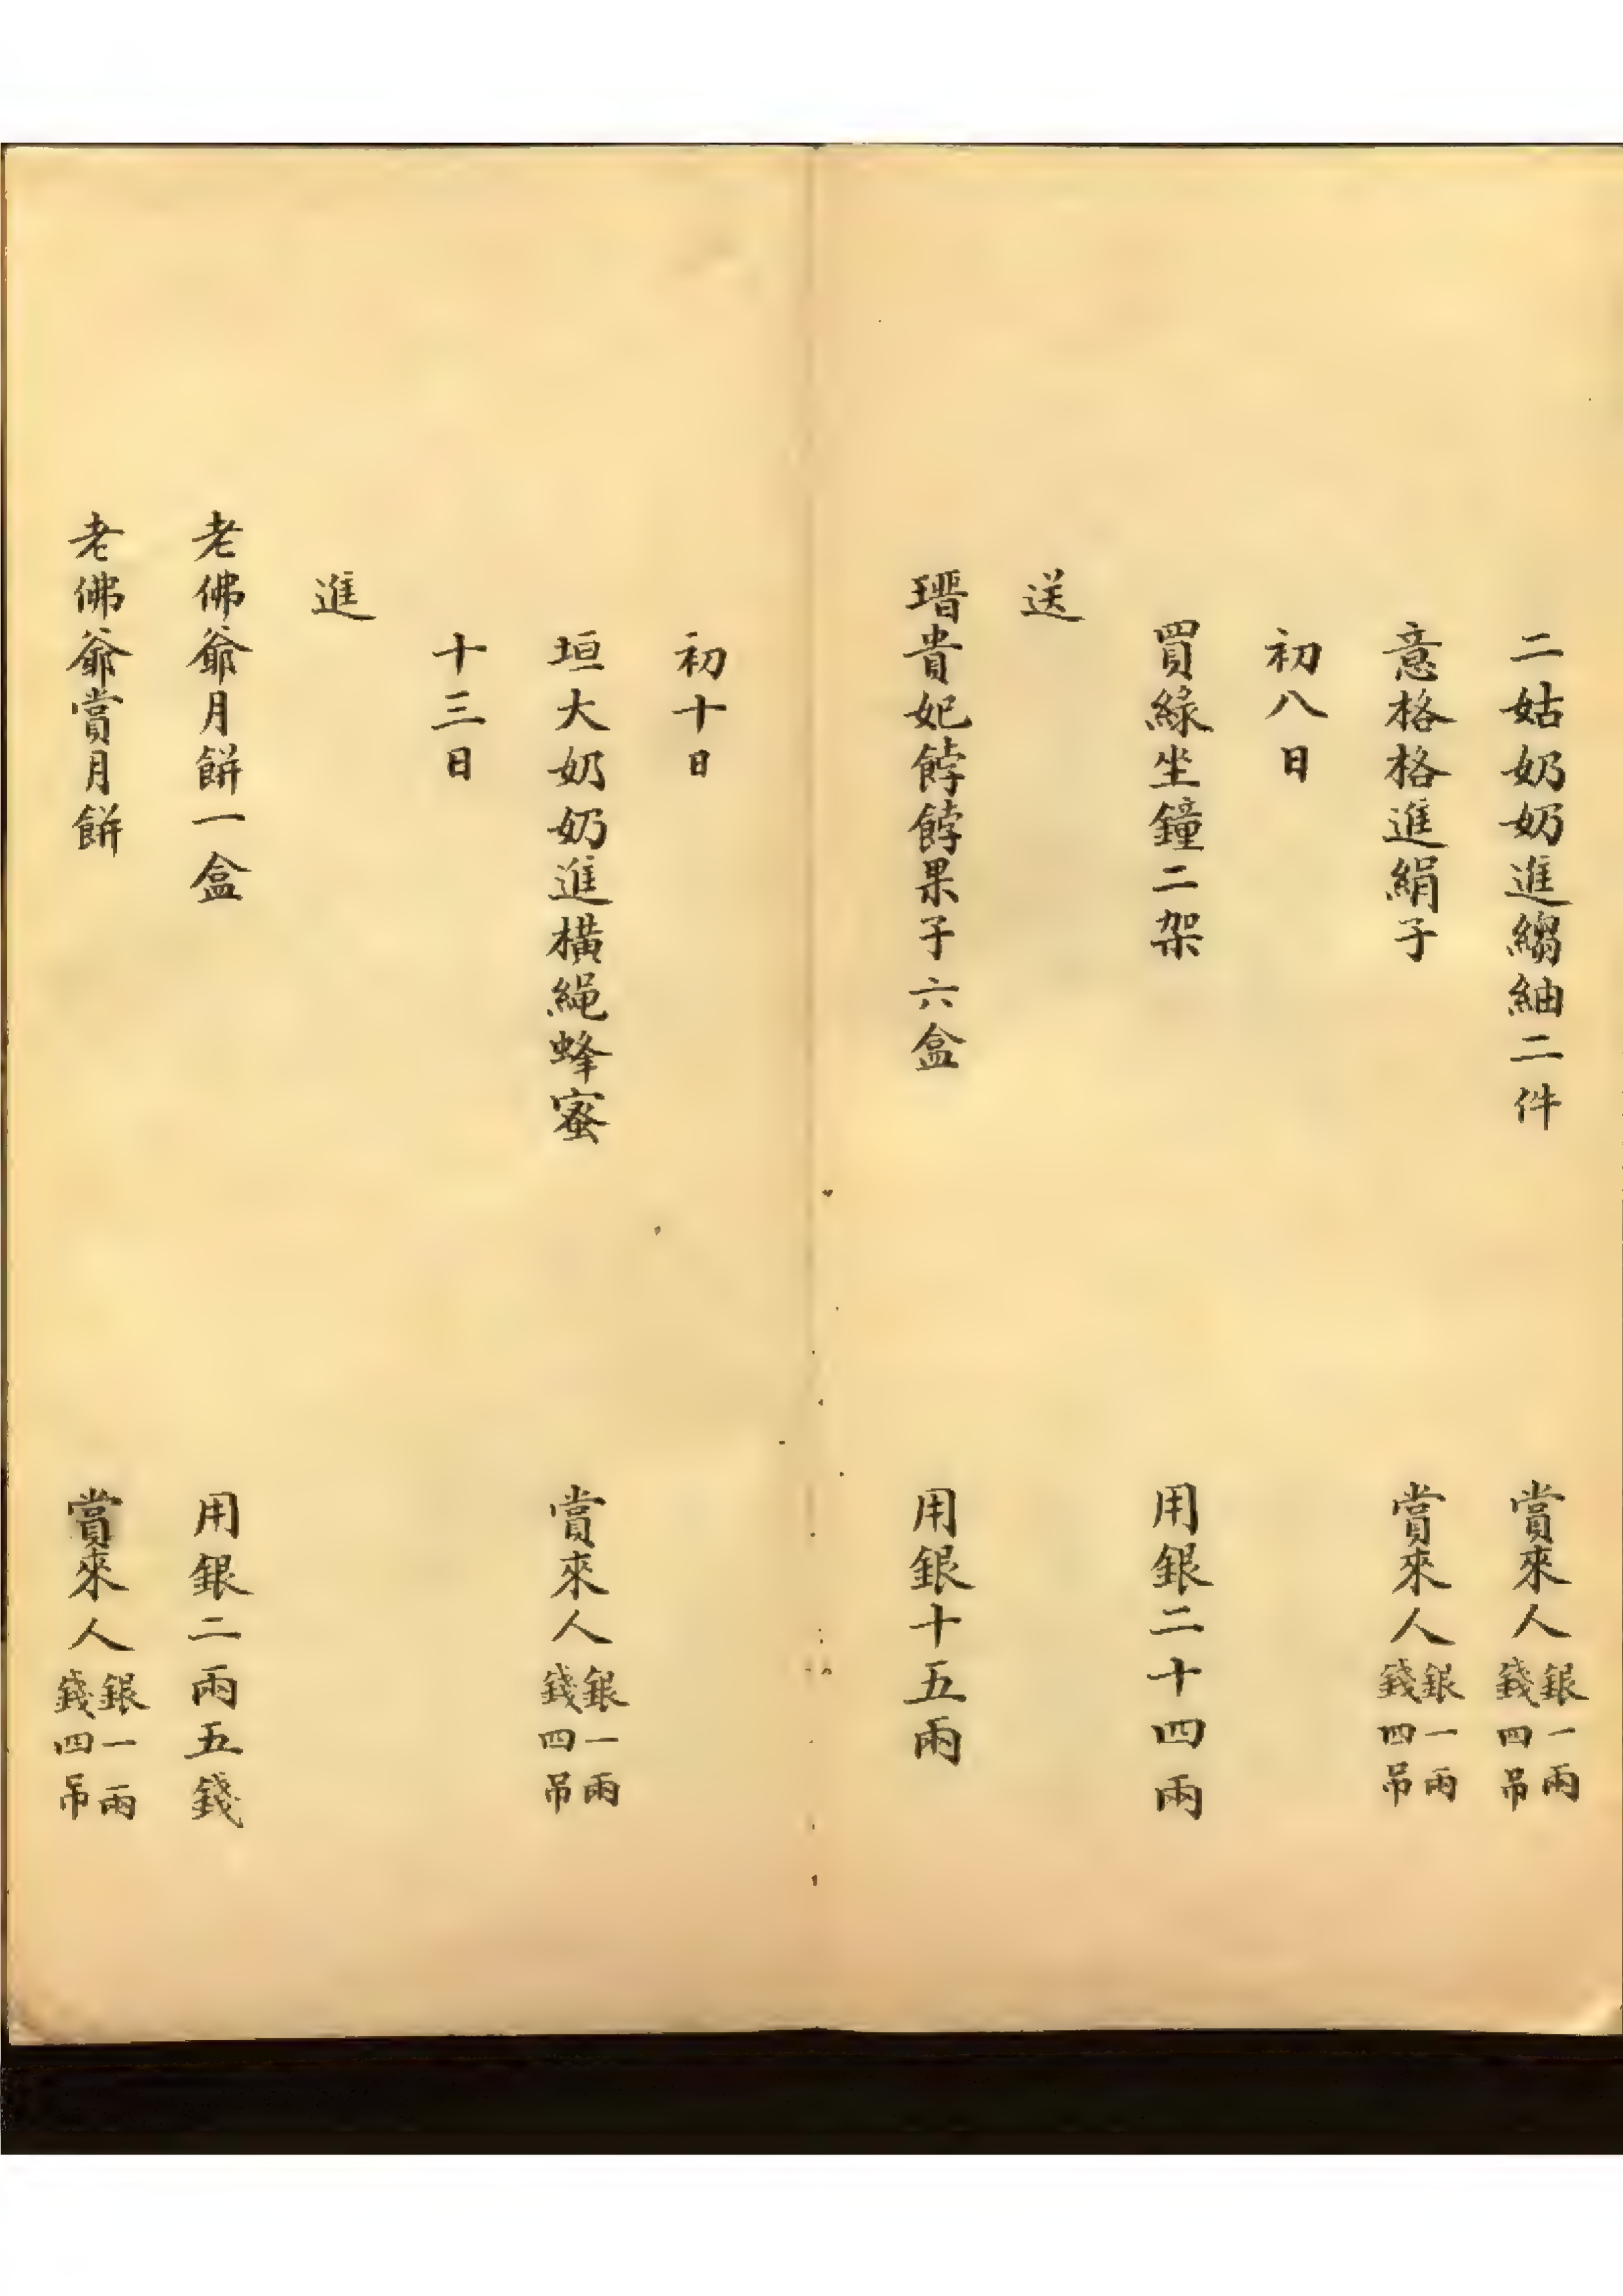 二姑奶奶進縐紬二件 賞來人銀一兩錢四吊
意格格進絹子 賞來人銀一兩錢四吊
初八日
買綠坐鐘二架 用銀二十四兩
送
瑨貴妃餑餑果子六盒 用銀十五兩
初十日
垣大奶奶進橫繩蜂蜜 賞來人銀一兩錢四吊
十三日
進
老佛爺月餅一盒 用銀二兩五錢
老佛爺賞月餅 賞來人銀一兩錢四吊